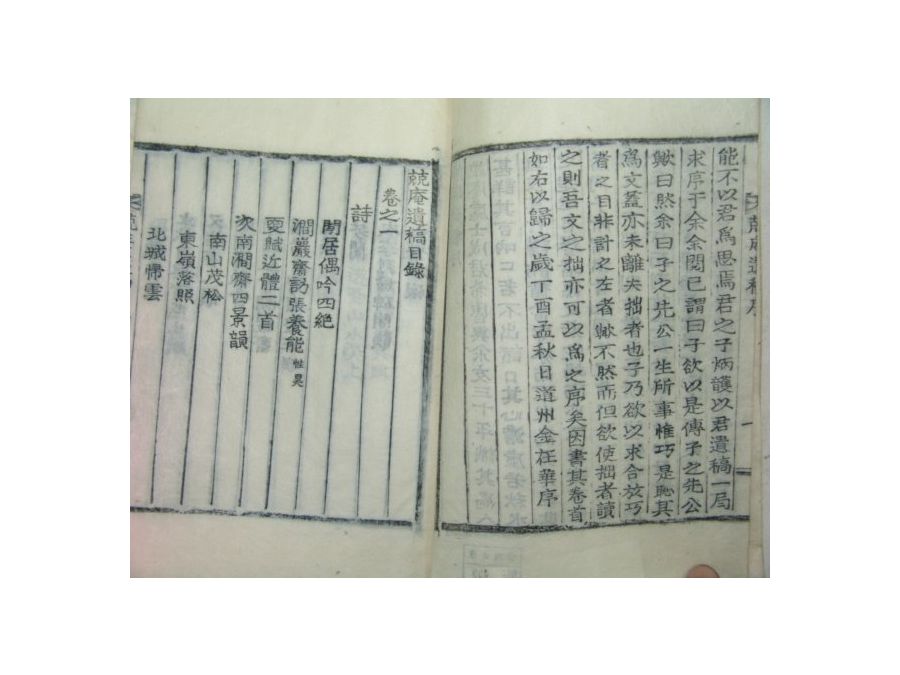 能不以君爲思焉君之子炳護以君遺稿一局
求序于余余閱已謂曰子欲以是傳子之先公
歟曰然余曰子之先公一生所事惟巧是恥其
爲文蓋亦未離夫拙者也子乃欲以求合於巧
者之目非計之左者歟不然而但欲使拙者讀
之則吾文之拙亦可以爲之序矣因書其卷首
如右以歸之歲丁酉孟秋日道州金在華序
兢庵遺稿目錄
卷之一
詩
閒居偶吟四絶
澗巖齋訪張養能 性昊
耍賦近體二首
次南澗齋四景韻
南山茂松
東嶺落照
北城歸雲